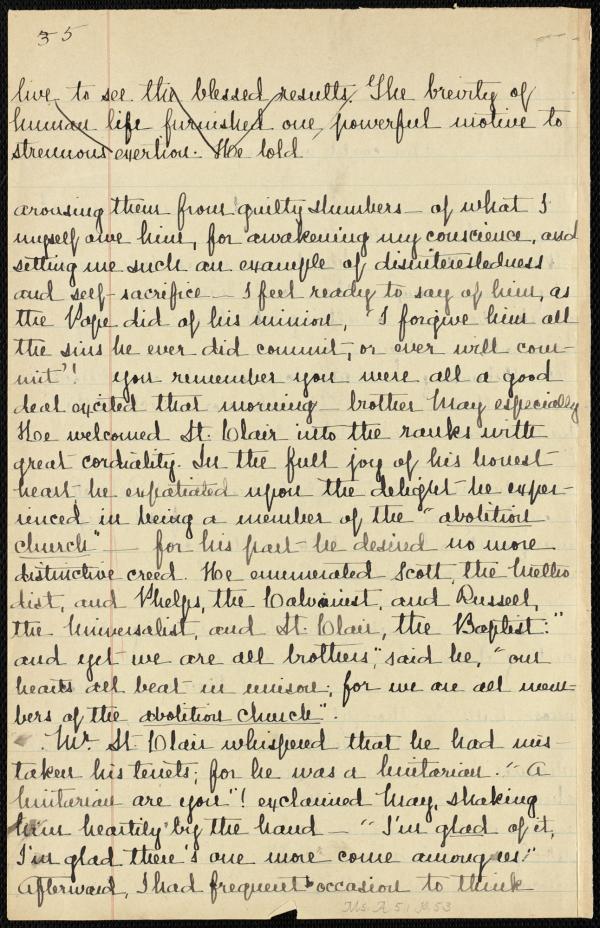 35
live to see the blessed results. The brevity of
human life furnished one powerful motive to
strenuous exertion. He told
arousing them from guilty slumbers – of what I
myself owe him, for awakening my conscience, and
setting me such an example of disinterestedness
and self-sacrifice – I feel ready to say of him, as
the Pope did of his minion, "I forgive him all
the sins he ever did commit, or ever will com-
mit"! you remember you were all a good
deal excited that morning – brother May especially
He welcomed St. Clair into the ranks with
great cordiality. In the full joy of his honest
heart he expatiated upon the delight he exper-
ienced in being a member of the "abolition
church" – for his part he desired no more
distinctive creed. He enumerated Scott, the Metho
dist, and Phelps, the Calvinist, and Russell,
the Universalist, and St. Clair, the Baptist:"
and yet we are all brothers," said he, "our
hearts all beat in unison; for we are all mem-
bers of the abolition church".
Mr. St. Clair whispered that he had mis-
taken his tenets; for he was a Unitarian. "A
Unitarian are you"! exclaimed May, shaking
him heartily by the hand – "I'm glad of it,
I'm glad there's one more come among us!"
Afterward, I had frequent occasion to think
Ms. A. 5.1 p. 53